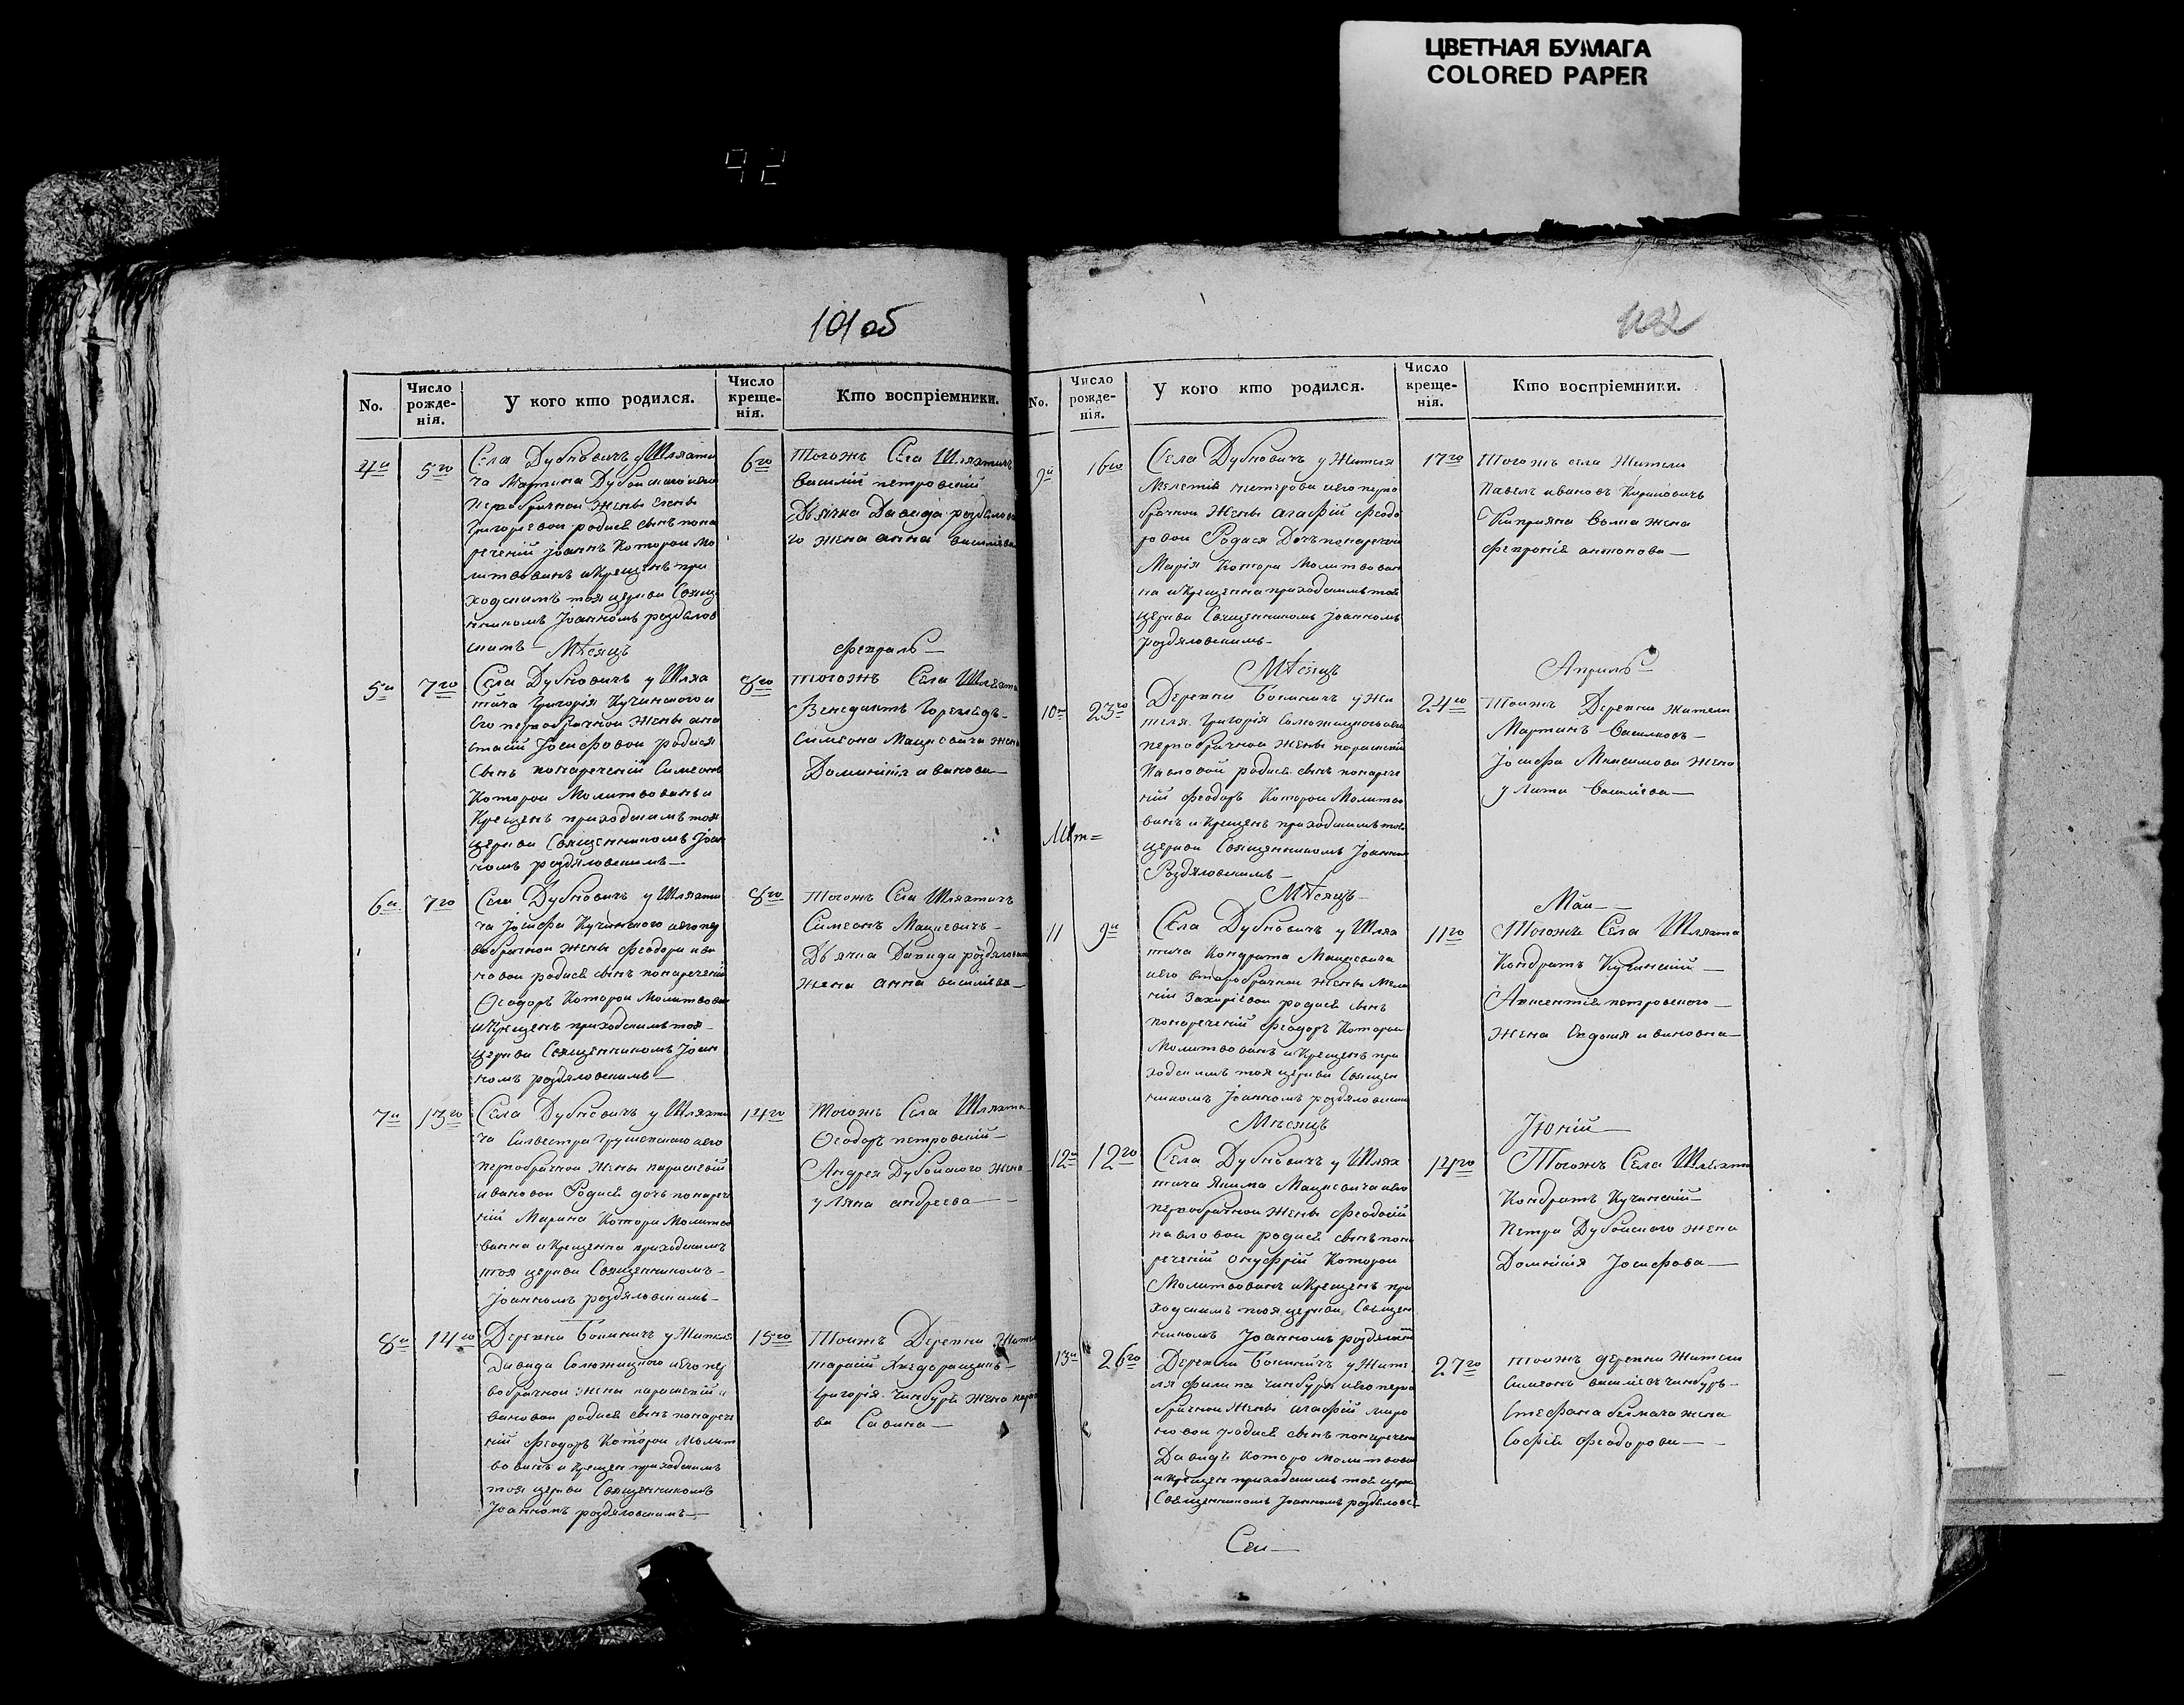 ЦВЕТНАЯ БУМАГА
COLORED PAPER
92
101 об
102
No.
Число рожде-нія.
У кого кто родился.
Число креще-нія.
Кто воспріемники.
4й
5го
Села Дубновичъ у Шляхти
ча Мартина Дубойского и его
первобрачной жены Елены
Григорїевой родися сынъ пона
реченїй Іоаннъ которой мо
литвованъ и крещенъ при
ходскимъ тоя церкви Свящ
нникомъ Іоанномъ роздялов
скимъ
6го
Тогожъ Села Шляхтичъ
Василїй петровскїй
Дьячка Давида роздялов
го жена анна василїева
Мѣсяцъ
Февраль
5й
7го
Села Дубновичъ у Шлях
тича Григорїя Кучинского и
его первобрачной жены ана
стасїи Іосифовой родися
сынъ понареченїй Симеонъ
Которой Молитвованъ и
Крещенъ приходскимъ тоя
церкви Священникомъ Іоан
номъ роздяловскимъ
8го
тогожъ Села Шляхта
Симеона Мацкевича жена
Доминикїя иванова
6й
7го
Села Дубновичъ у Шляхти
ча Іосифа Кучинского и его пер
вобрачной жены феодоры ива
новой родися сынъ понареченїй
Ѳеодоръ Которой Молитвован
и Крещенъ приходскимъ тоя
церкви Священникомъ Іоан
номъ роздяловскимъ
8го
Тогожъ Села Шляхтичъ
Симеонъ Мацкевичъ
Дьячка Давида роздяловск
жена анна василїева
7й
13го
Села Дубновичъ у Шляхти
ча Силвестра Грушевского и его
первобрачной жены параскевїи
ивановой Родися дочь понарече
нїй Марина Котора Молитво
ванна и Крещенна приходскимъ
тоя церкви Священникомъ
Іоанномъ роздяловскимъ
14го
Тогожъ Села Шляхта
Ѳеодоръ петровскїй
Андрея Дубойского жена
уляна андреева
8й
14го
Деревни Бокиничъ у Жителя
Давида и его пер
вобрачной жены параскевїи и
вановой родися сынъ понарече
нїй Феодоръ Которой Молит
вованъ и Крещен приходскимъ
тоя церкви Священникомъ
Іоанномъ роздяловскимъ
15го
Тоижъ Деревни
тарасїй
Григорїя Чимбуря жена
Савина
No.
Число рожде-нія.
У кого кто родился.
Число креще-нія.
Кто воспріемники.
9й
16го
Села Дубновичъ у Жителя
Мелетїя и его перво
брачной Жены агафїи феодо
ровой Родися Дочь понаречен
Марїя Котора Молитвован
на и Крещенна приходскимъ тоя
церкви Священникомъ Іоанномъ
роздяловскимъ
17го
Тогожъ села Жители
Павелъ ивановъ Кириловичъ
Киприяна жена
февронїя антонова
Мѣсяцъ
Апрель
10й
23го
Деревни Бокиничъ у Жи
теля Григорїя и его
первобрачной Жены параскевїи
Павловой родися сынъ понарече
нїй феодоръ Которой Молитво
ванъ и Крещенъ приходскимъ тоя
церкви Священникомъ Іоанном
Роздяловскимъ
24го
Тоижъ Деревни жители
Мартинъ
Іосифа Максимова Жена
улита Василїева
Мѣсяцъ
Май
11
9й
Села Дубновичъ у Шлях
тича Кондрата Мацкевича
и его второбрачной Жены Мела
нїи Захарїевой родися сынъ
понареченїй Феодоръ Которой
Молитвованъ и Крещенъ при
ходскимъ тоя церкви Священ
никомъ Іоанномъ роздяловским
11го
Тогожъ Села Шляхта
Кондратъ Кучинскїй
Авксентїя петровского
жена Евдокия ивановна
Мѣсяцъ
Іюнїй
12й
12го
Села Дубновичъ у Шлях
тича Якима Мацкевича и его
первобрачной Жены феодосїи
павловой родися сынъ пона
реченїй Онуфрїй Которой
Молитвованъ и Крещенъ при
ходскимъ тоя церкви Священ
никомъ Іоанномъ роздяловским
14го
Тогожъ Села Шляхта
Кондратъ Кучинскїй
Петра Дубойского жена
Доминикїя Іосифова
13й
26го
Деревни Бокиничъ у Жите
ля Филипа Чимбуря и его перво
брачной Жены агафїи миро
новой родися сынъ понаречен
Давидъ Которо Молитвован
и Крещен приходскимъ тоя церкви
Священникомъ Іоанномъ роздяловс
27го
тоижъ деревни Жители
Симеонъ Чимбуръ
Стефана жена
Софїя Феодорова
Сеи